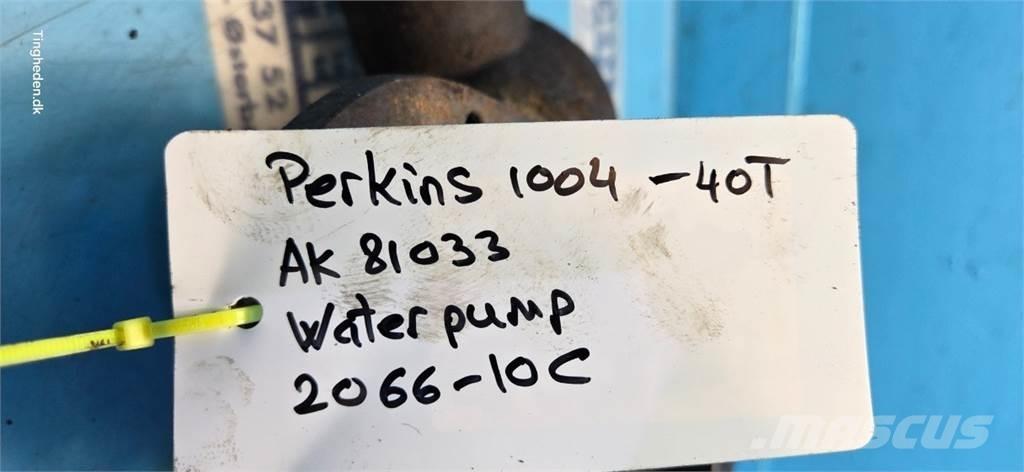 Tingheden.dk
37 52
Perkins 1004-40T
AK 81033
Waterpump
2066-10C
MASCUS